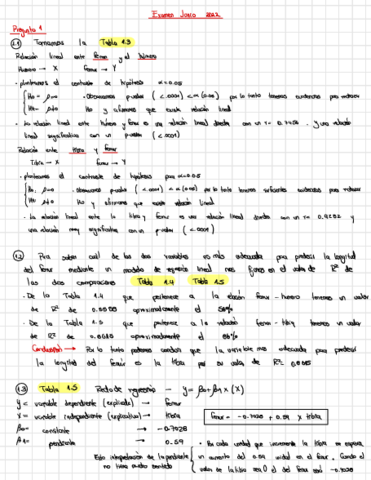 Examen Junio 2022
Pregunta 1
1.1 Tomamos la Tabla 1.3
Relación lineal entre fémur y el húmero
Húmero → X Fémur → Y
· planteamos el contraste de hipótesis α=0.05
H0 = ρ=0 · Observamos p-valor (<.0001) < α (0.05) por lo tanto tenemos evidencias para rechazar
H1 = ρ≠0 H0 y afirmamos que existe relación lineal
lineal significativa con un p-valor (<.0001)
Relación entre tibia y fémur
Tibia → X fémur → Y
· planteamos el contraste de hipótesis para α=0.05
H0: ρ=0 · Observamos p-valor (<.0001) < α (0.05) por lo tanto tenemos suficientes evidencias para rechazar
H1: ρ≠0 H0 y afirmamos que existe relación lineal
· La relación lineal entre la tibia y fémur es una relación lineal directa con un r=
una relación muy significativa con un p-valor (<.0001)
1.2 Para saber cuál de las dos variables es más adecuada para predecir la longitud
del fémur mediante un modelo de regresión lineal nos fijamos en el valor de R² de
las dos comparaciones Tabla 1.4 Tabla 1.5
· De la Tabla 1.4 que pertenece a la relación fémur - húmero tenemos un valor
de R² de aproximadamente el
· De la Tabla 1.5 que pertenece a la relación fémur - tibia tenemos un valor
de R² de aproximadamente el
Conclusión → Por lo tanto podemos concluir que la variable más adecuada para predecir
la longitud del fémur es la tibia por su valor de R²
1.3 Tabla 1.5 Recta de regresión → y = β0 + β1 × (X)
y = variable dependiente (explicada) → fémur
x = variable independiente (explicativa) → tibia
β0 = constante → -0.7028
β1 = pendiente → 0.59
fémur = + 0.59 × tibia
· Por cada unidad que incremente la tibia se espera
un aumento del 0.59 unidad en el fémur. Cuando el
valor de la tibia sea 0 el del fémur será -0.7028
Esta interpretación de la pendiente
no tiene mucho sentido